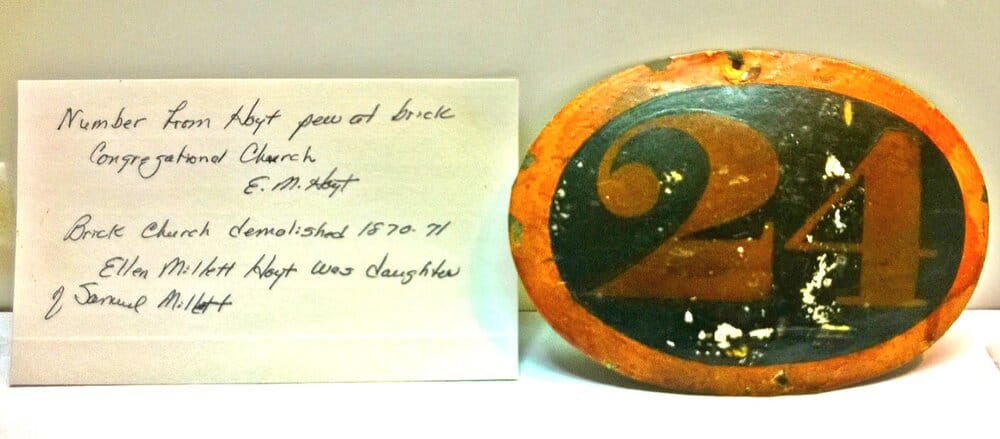 Number from Hoyt pew at brick
Congregational Church
E. M. Hoyt
Brick Church demolished 1870-71
Ellen Millett Hoyt was daughter
of Samuel Millett
24